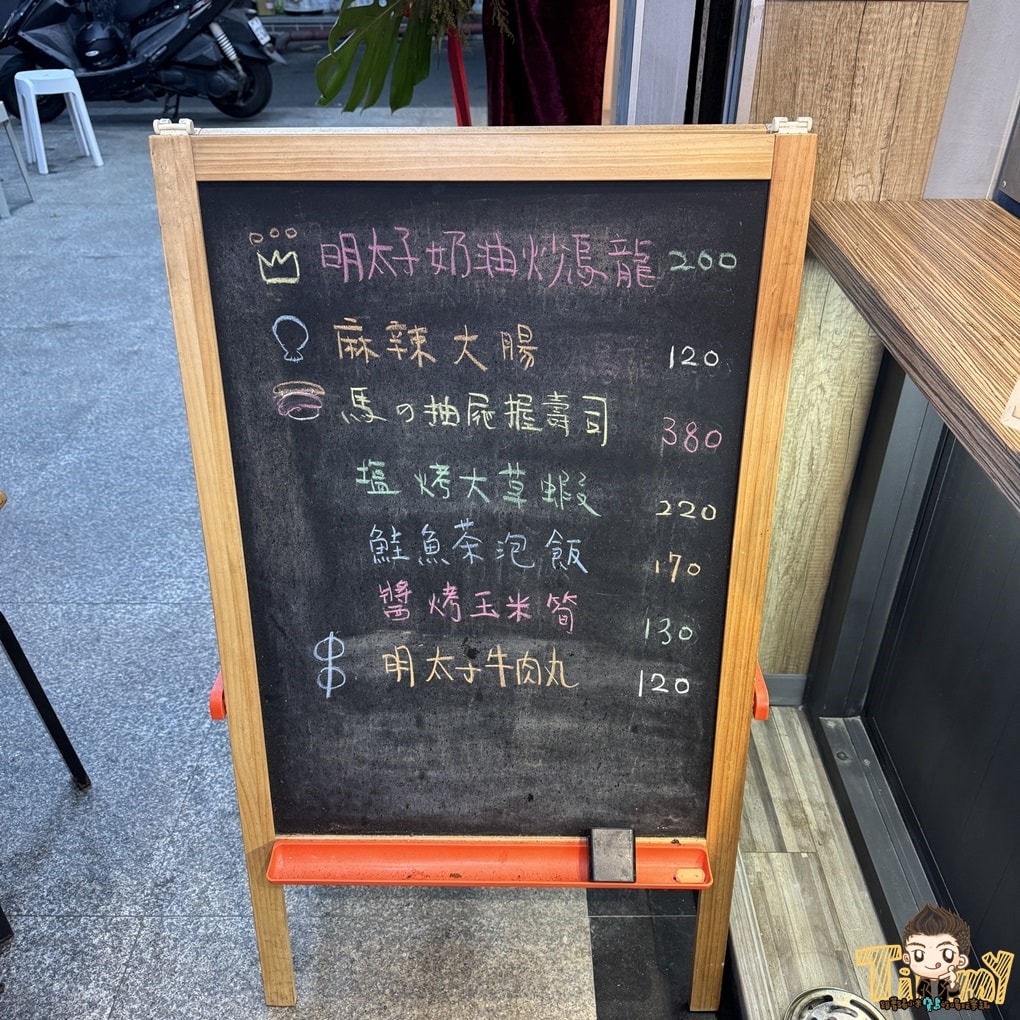 明太子奶油炒烏龍 200
麻辣大腸 120
馬の抽屁握壽司 380
塩烤大草蝦 220
鮭魚茶泡飯 170
醬烤玉米筍 130
$ 明太子牛肉丸 120
Timmy